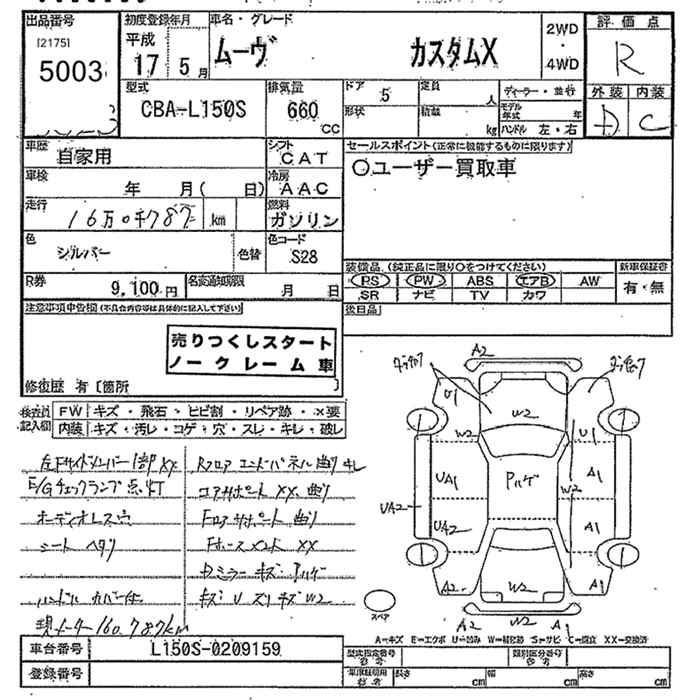 出品番号 初度登録年月 車名・グレード 評価点
[2175] 平成 2WD
5003 17 5月 ムーヴ カスタムX ・ R
4WD
型式 排気量 ドア 5 定員 人 ディーラー・並行 外装 内装
CBA-L150S 660 CC 形状 積載 kg モデル年式 年 D C
ハンドル 左・右
車歴 自家用 シフト CAT セールスポイント(正常に機能するものに限ります)
車検 年 月( 日) 冷房 AAC 〇ユーザー買取車
走行 16万0千787 km 燃料 ガソリン
色 シルバー 色替 色コード S28
R券 9,100円 名変通知期限 月 日
装備品(純正品に限り〇をつけてください) 新車保証書
PS PW ABS エアB AW 有・無
SR ナビ TV カワ
後日品
注意事項申告欄(不具合内容等は具体的に記入して下さい)
売りつくしスタート
ノークレーム車
修復歴 有〔箇所 〕
検査員記入欄 FW キズ・飛石・ヒビ割・リペア跡・×要
内装 キズ・汚レ・コゲ・穴・スレ・キレ・破レ
左Fサイドメンバー1部XX
E/Gチェックランプ点灯
オーディオレス穴
シート ヘタリ
ハンドルカバー付
現メーター160,787km
Rフロア エンドパネル曲り キレ
コアサポート XX 曲り
Fコアサポート曲り
Fホース XX
Dミラー キズ ハゲ
キズ U スリキズ W2
A2
U1 W2 U1
W2 W2
UA1 Pハゲ A1
UA2 UA2 A1
A2 W2 A1
A2 W2 A1
スペア
A=キズ E=エクボ U=凹み W=補修跡 S=サビ C=腐食 XX=交換済
車台番号 L150S-0209159
型式指定番号 類別区分番号
登録番号
長さ cm 幅 cm 高さ cm